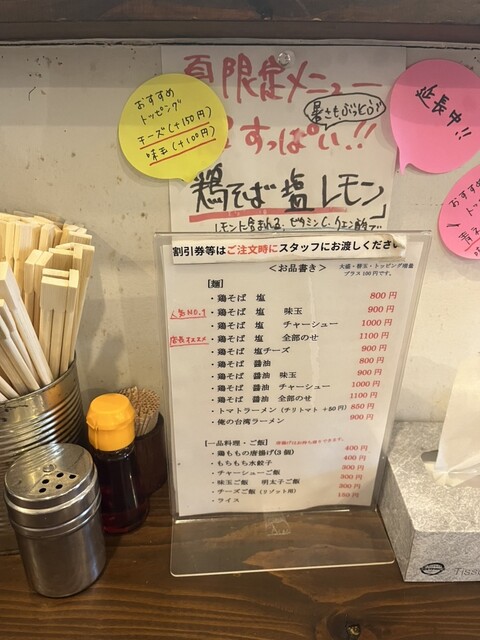 夏限定メニュー
暑さもぶっとぶ
すっぱい!!
鶏そば 塩 レモン
レモンに含まれる、ビタミンC、クエン酸で
おすすめ
トッピング
チーズ(+150円)
味玉(+100円)
延長中!!
おすすめ
割引券等はご注文時にスタッフにお渡しください
<お品書き>
大盛・替玉・トッピング増量
プラス100円です。
[麺]
・鶏そば 塩 800円
人気NO.1 ・鶏そば 塩 味玉 900円
・鶏そば 塩 チャーシュー 1000円
店長オススメ ・鶏そば 塩 全部のせ 1100円
・鶏そば 塩チーズ 900円
・鶏そば 醤油 800円
・鶏そば 醤油 味玉 900円
・鶏そば 醤油 チャーシュー 1000円
・鶏そば 醤油 全部のせ 1100円
・トマトラーメン(チリトマト +50円) 850円
・俺の台湾ラーメン 900円
[一品料理・ご飯] 唐揚げはお持ち帰りできます。
・鶏ももの唐揚げ(3個) 400円
・もちもち水餃子 400円
・チャーシューご飯 300円
・味玉ご飯 明太子ご飯 300円
・チーズご飯(リゾット用) 300円
・ライス 150円